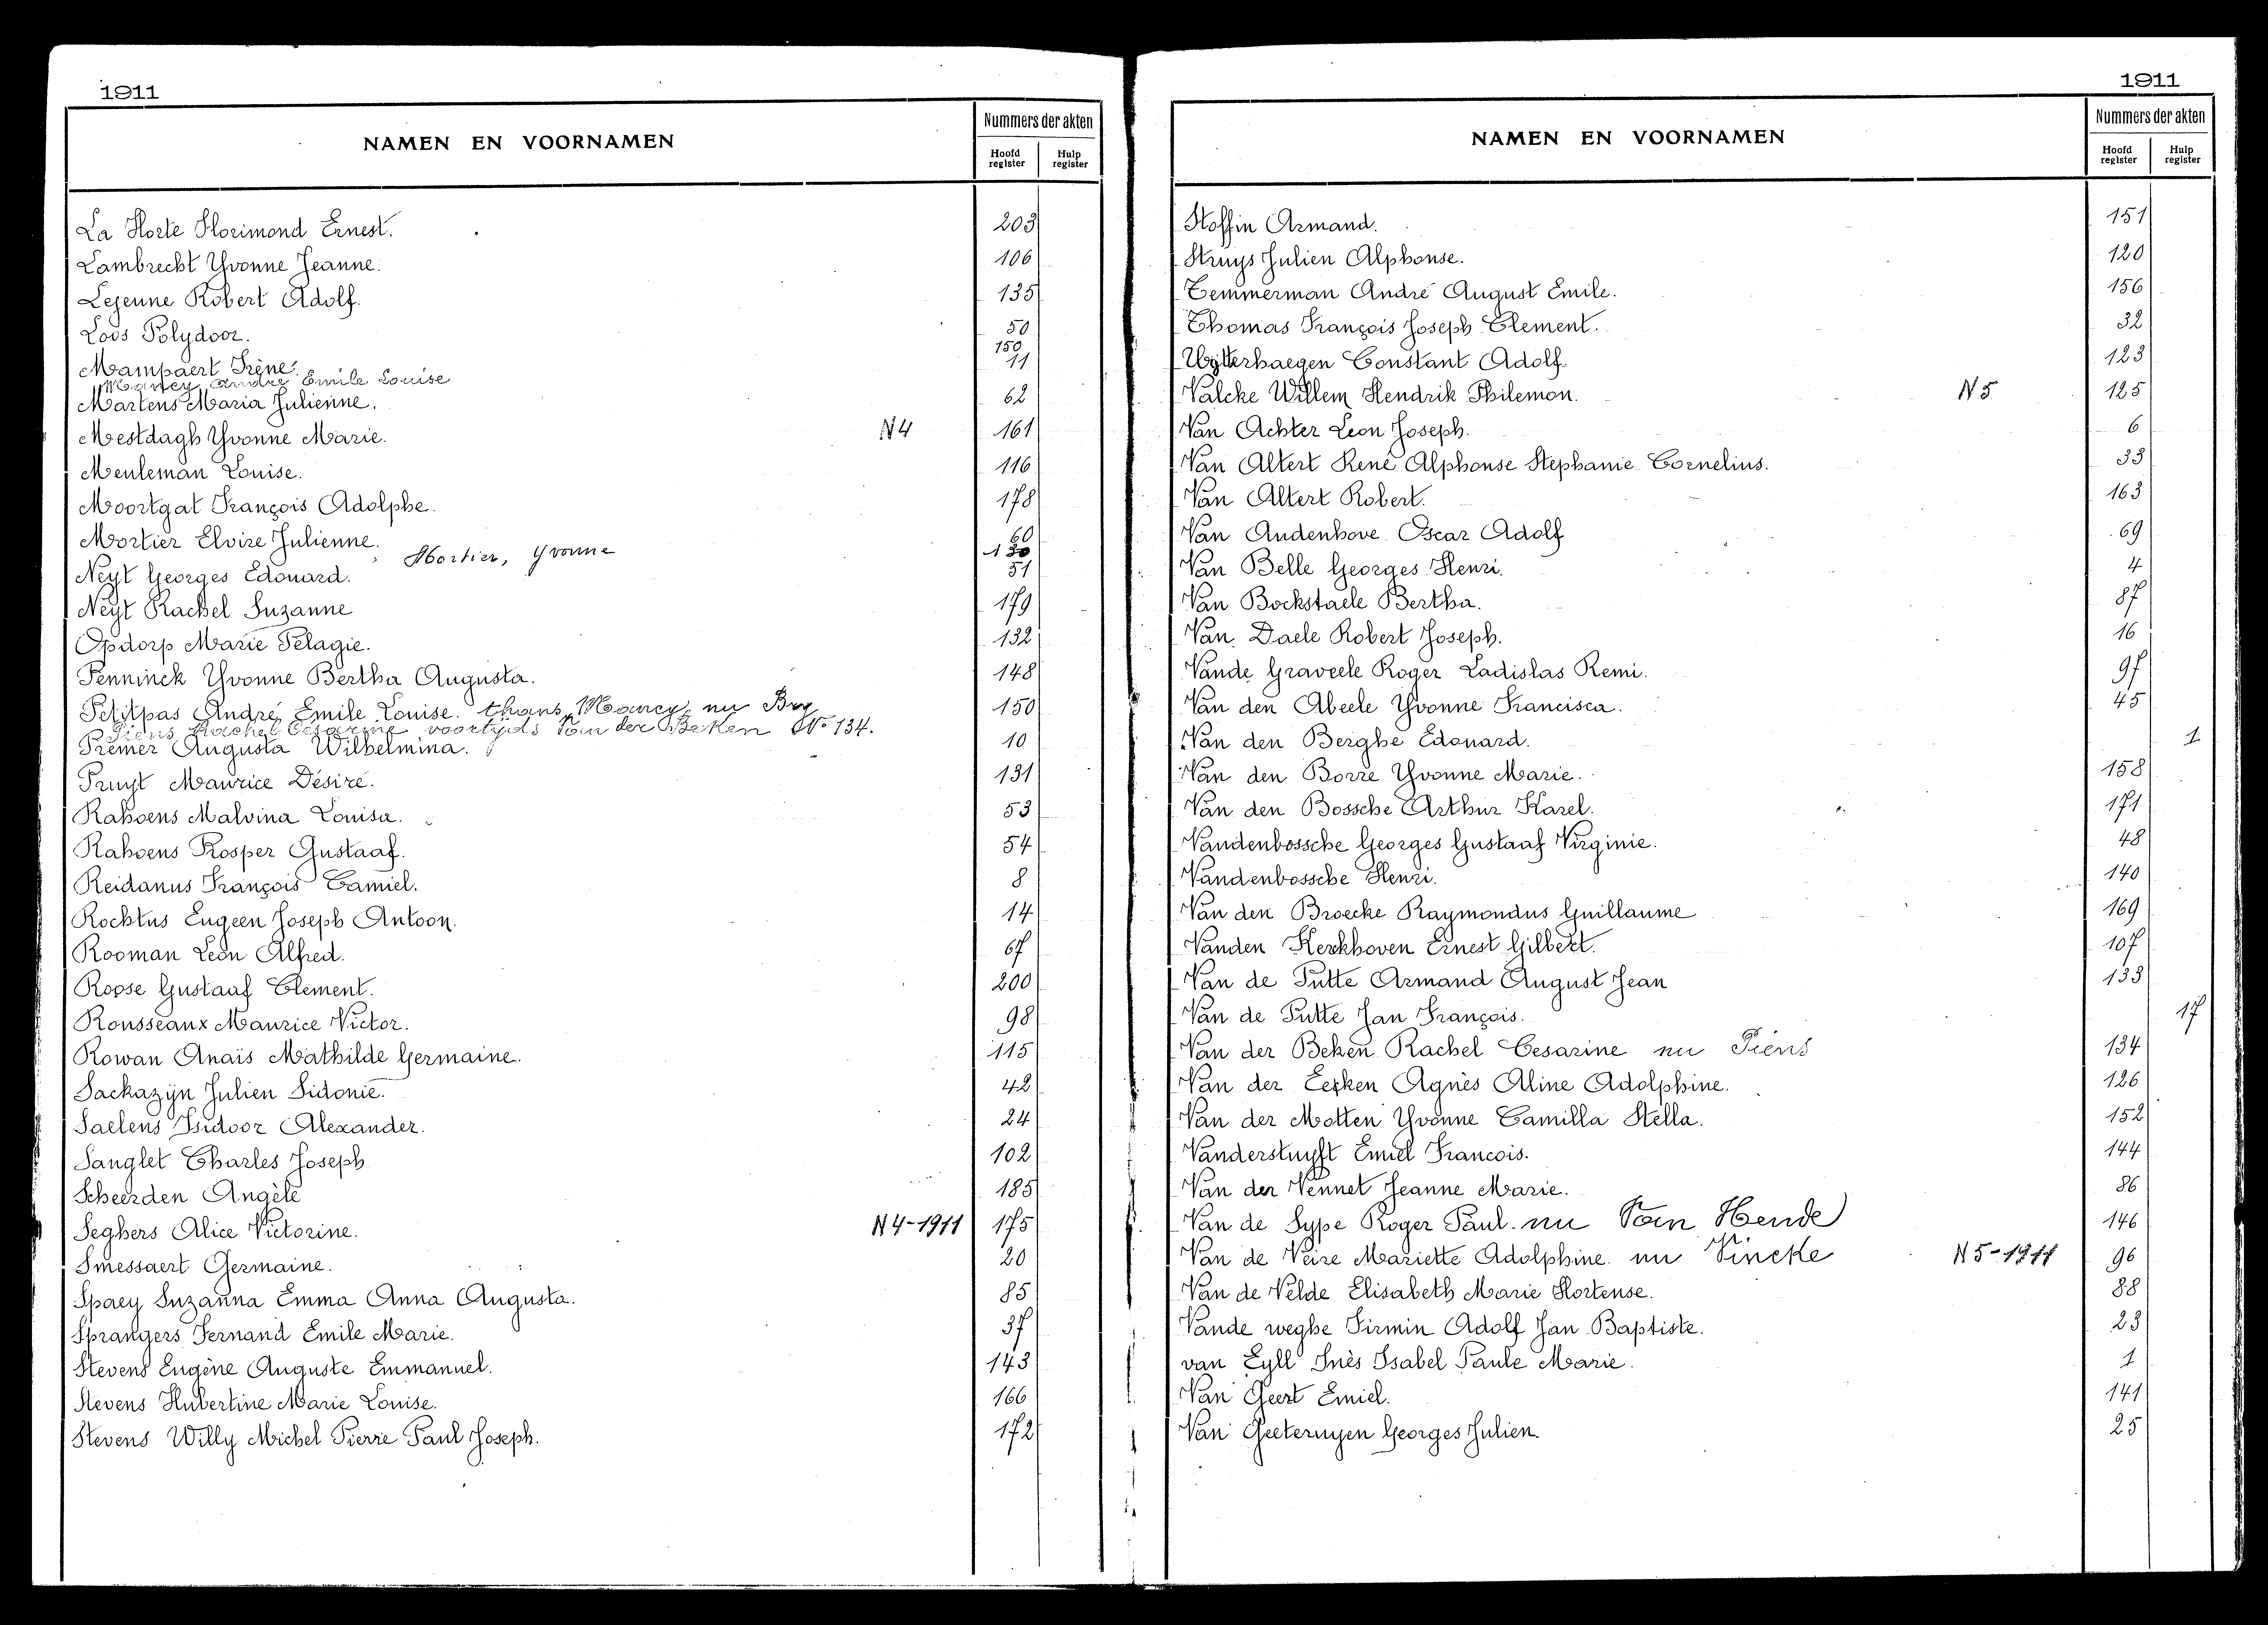 1911
NAMEN EN VOORNAMEN
Nummers der akten
Hoofd register
Hulp register
La Horte Florimond Ernest. 203
Lambrecht Yvonne Jeanne. 106
Lejeune Robert Adolf. 135
Loos Polydoor. 50
150
Mampaert Irène. 11
Marcy André Emile Louise
Martens Maria Julienne. 62
Mestdagh Yvonne Marie. N4 161
Meuleman Louise. 116
Moortgat François Adolphe. 178
Mortier Elvire Julienne. 60
Mortier, Yvonne 130
Neyt Georges Edouard. 51
Neyt Rachel Suzanne 179
Opdorp Marie Pelagie. 132
Penninck Yvonne Bertha Augusta. 148
Petitpas André Emile Louise. thans Marcy, nu Bry 150
Piens Rachel Cesarine voortijds Van der Beken No 134.
Premer Augusta Wilhelmina. 10
Pruyt Maurice Désiré. 131
Rahoens Malvina Louisa. 53
Rahoens Prosper Gustaaf. 54
Reidanus François Camiel. 8
Rochtus Eugeen Joseph Antoon. 14
Rooman Leon Alfred. 67
Roose Gustaaf Clement. 200
Rousseaux Maurice Victor. 98
Rowan Anaïs Mathilde Germaine. 115
Sackazijn Julien Sidonie. 42
Saelens Isidoor Alexander. 24
Sanglet Charles Joseph 102
Scheerden Angèle 185
Seghers Alice Victorine. N4-1911 175
Smessaert Germaine. 20
Spaey Suzanna Emma Anna Augusta. 85
Sprangers Fernand Emile Marie. 37
Stevens Eugène Auguste Emmanuel. 143
Stevens Hubertine Marie Louise. 166
Stevens Willy Michel Pierre Paul Joseph. 172
1911
NAMEN EN VOORNAMEN
Nummers der akten
Hoofd register
Hulp register
Stoffin Armand. 151
Struys Julien Alphonse. 120
Temmerman André August Emile. 156
Thomas François Joseph Clement. 32
Uytterhaegen Constant Adolf. 123
Valcke Willem Hendrik Philemon. N5 125
Van Achter Leon Joseph. 6
Van Altert René Alphonse Stephanie Cornelius. 33
Van Altert Robert. 163
Van Audenhove Oscar Adolf 69
Van Belle Georges Henri. 4
Van Bockstaele Bertha. 87
Van Daele Robert Joseph. 16
Vande Graveele Roger Ladislas Remi. 97
Van den Abeele Yvonne Francisca. 45
Van den Berghe Edouard. 1
Van den Borre Yvonne Marie. 158
Van den Bossche Arthur Karel. 171
Vandenbossche Georges Gustaaf Virginie. 48
Vandenbossche Henri. 140
Van den Broecke Raymondus Guillaume 169
Vanden Kerkhoven Ernest Gilbert. 107
Van de Putte Armand August Jean 133
Van de Putte Jan François. 17
Van der Beken Rachel Cesarine nu Piens 134
Van der Eecken Agnès Aline Adolphine. 126
Van der Motten Yvonne Camilla Stella. 152
Vanderstuyft Emiel Francois. 144
Van der Vennet Jeanne Marie. 86
Van de Sype Roger Paul. nu Van Hende 146
Van de Veire Mariette Adolphine. nu Vincke N5-1911 96
Van de Velde Elisabeth Marie Hortense. 88
Vande weghe Firmin Adolf Jan Baptiste. 23
van Eyll Inès Isabel Paule Marie. 1
Van Geert Emiel. 141
Van Geeteruyen Georges Julien. 25